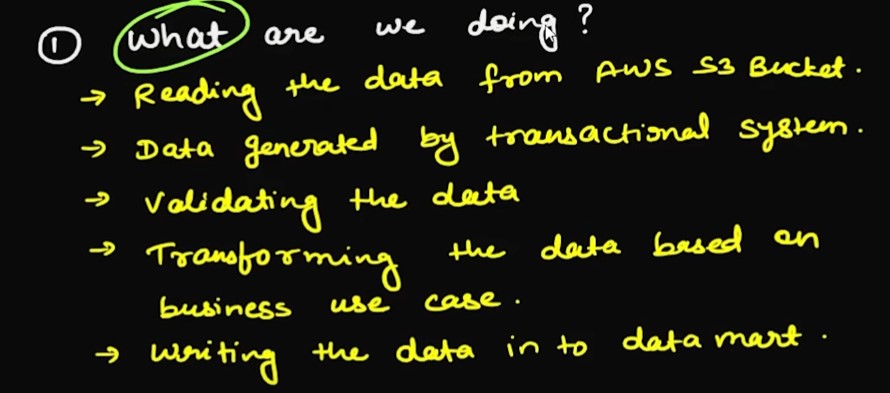 ① What are we doing?
→ Reading the data from AWS S3 Bucket.
→ Data generated by transactional system.
→ Validating the data
→ Transforming the data based on
business use case.
→ Writing the data in to data mart.